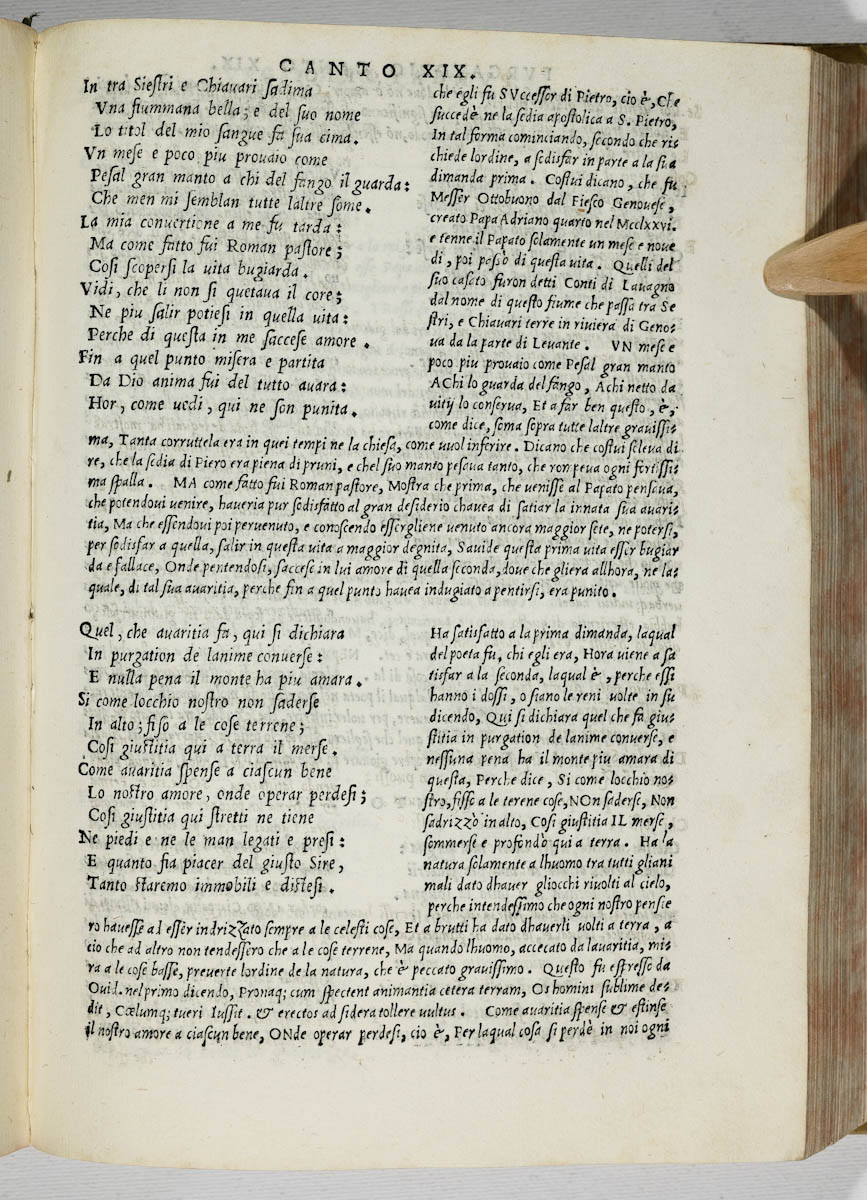 CANTO XIX.
In tra Siestri e Chiauari sadima
Vna fiummana bella; e del suo nome
Lo titol del mio sangue fa sua cima.
Vn mese e poco piu prouaio come
Pesal gran manto a chi del fango il guarda:
Che men mi semblan tutte laltre some.
La mia conuertione a me fu tarda:
Ma come fatto fui Roman pastore;
Cosi scopersi la uita bugiarda.
Vidi, che li non si quetaua il core;
Ne piu salir potiesi in quella uita:
Perche di questa in me saccese amore.
Fin a quel punto misera e partita
Da Dio anima fui del tutto auara:
Hor, come uedi, qui ne son punita.
che egli fu SVccessor di Pietro, cio è, Che
succedè ne la sedia apostolica a S. Pietro,
In tal forma cominciando, secondo che ris
chiede lordine, a sedisfar in parte a la sua
dimanda prima. Costui dicano, che fu
Messer Ottobuono dal Fiesco Genouese,
creato Papa Adriano quarto nel Mcclxxvi.
e tenne il Papato solamente un mese e noue
di, poi passò di questa uita. Quelli del
suo casato furon detti Conti di Lauagno
dal nome di questo fiume che passa tra Se
stri, e Chiauari terre in riuiera di Geno:
ua da la parte di Leuante. VN mese e
poco piu prouaio come Pesal gran manto
AChi lo guarda del fango, Achi netto da
uitij lo conserua, Et a far ben questo, è,
come dice, soma sopra tutte laltre grauissi:
ma, Tanta corruttela era in quei tempi ne la chiesa, come uuol inferire. Dicano che costui soleua di
re, che la sedia di Piero era piena di pruni, e chel suo manto pesaua tanto, che rompeua ogni fortissi:
ma spalla. MA come fatto fui Roman pastore, Mostra che prima, che uenisse al Papato pensaua,
che potendoui uenire, haueria pur sedisfatto al gran desiderio chauea di satiar la innata sua auari:
tia, Ma che essendoui poi peruenuto, e conoscendo essergliene uenuto ancora maggior sete, ne potersi,
per sodisfar a quella, salir in questa uita a maggior degnita, Sauide questa prima uita esser bugiar
da e fallace, Onde pentendosi, saccese in lui amore di quella seconda, doue che gliera allhora, ne la:
quale, di tal sua auaritia, perche fin a quel punto hauea indugiato a pentirsi, era punito.
Quel, che auaritia fa, qui si dichiara
In purgation de lanime conuerse:
E nulla pena il monte ha piu amara.
Si come locchio nostro non saderse
In alto; fiso a le cose terrene;
Cosi giustitia qui a terra il merse.
Come auaritia spense a ciascun bene
Lo nostro amore, onde operar perdesi;
Cosi giustitia qui stretti ne tiene
Ne piedi e ne le man legati e presi:
E quanto fia piacer del giusto Sire,
Tanto staremo immobili e distesi.
Ha satisfatto a la prima dimanda, laqual
del poeta fu, chi egli era, Hora uiene a sa
tisfar a la seconda, laqual è, perche essi
hanno i dossi, o siano le reni uolte in su
dicendo, Qui si dichiara quel che fa gius
stitia in purgation de lanime conuerse, e
nessuna pena ha il monte piu amara di
questa, Perche dice, Si come locchio no:
stro, fisso a le terene cose, NOn saderse, Non
sadrizzò in alto, Cosi giustitia IL merse,
sommerse e profondò qui a terra. Ha la
natura solamente a lhuomo tra tutti gliani
mali dato dhauer gliocchi riuolti al cielo,
perche intendessimo che ogni nostro pensie
ro hauesse ad esser indrizzato sempre a le celesti cose, Et a brutti ha dato dhauerli uolti a terra, a
cio che ad altro non tendessero che a le cose terrene, Ma quando lhuomo, accecato da lauaritia, mi:
ra a le cose basse, preuerte lordine de la natura, che è peccato grauissimo. Questo fu espresso da
Ouid. nel primo dicendo, Pronaq; cum spectent animantia cetera terram, Os homini sublime de:
dit, Cœlumq; tueri Iussit. & erectos ad sidera tollere uultus. Come auaritia spense & estinse
il nostro amore a ciascun bene, ONde operar perdesi, cio è, Per laqual cosa si perdè in noi ogni